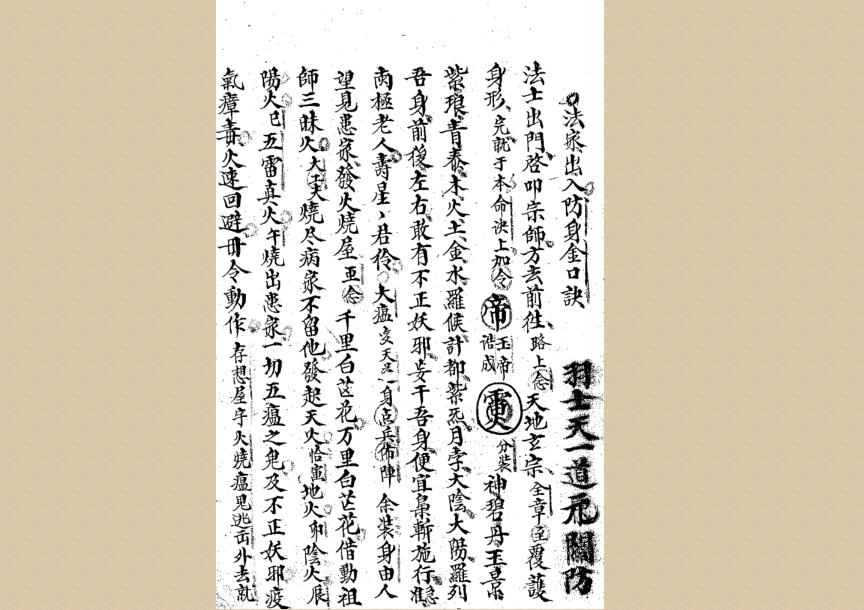 法家出入防身金口訣
羽士天一道元關防
法士出門啓叩宗師方去前徃路上念天地玄宗全章至覆護
身形完就于本命訣上加令帝玉帝诰成分裝神碧丹玉景
紫琅青泰木火土金水羅候計都紫炁月孛大陰大陽羅列
吾身前後左右敢有不正妖邪妄干吾身便宜梟斬施行
南極老人壽星君伶大瘟变天一身点兵佈陣余裝身由人
望見患家發火燒屋亚念千里白芒花万里白芒花借動祖
師三昧火燒尽病家不留他發起天火恰寅地火卯陰火辰
陽火巳五雷真火午燒出患家一切五瘟之鬼及不正妖邪疫
氣瘴毒火速回避毋令動作存想屋宇火燒瘟鬼逃出外去就